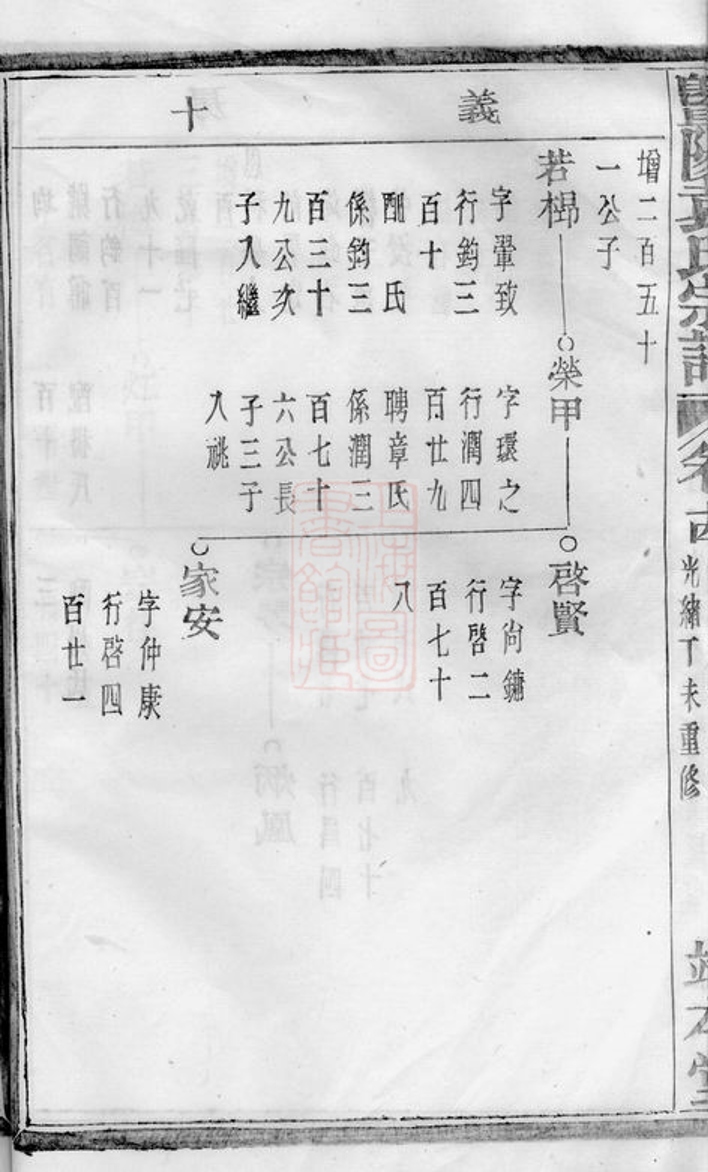 義
十
增二百五十
一公子
若楊
字翬致
行鈞三
百十
配氏
係鈞三
百三十
九公次
子入繼
榮甲
字環之
行潤四
百廿九
聘章氏
係潤三
百七十
六公長
子三子
入祧
啓賢
字尚鏞
行啓二
百七十
八
家安
字仲康
行啓四
百廿一
光緒丁未重修